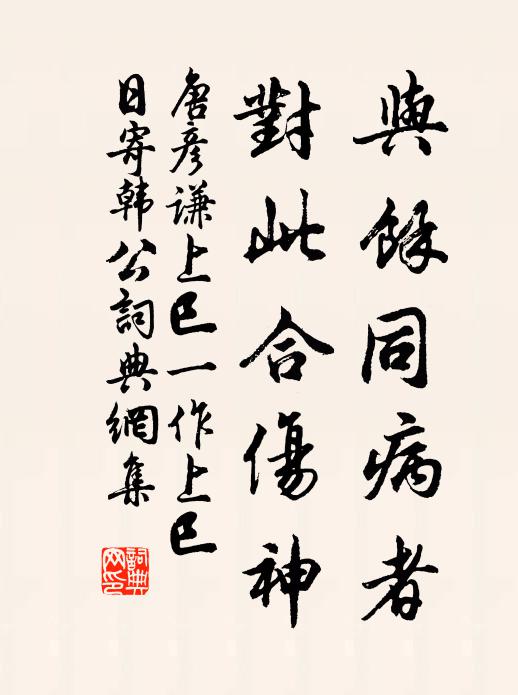 與餘同病者
對此合傷神
唐彥謙上巳一作上巳
日寄韓公詞典網集
詞典
网印